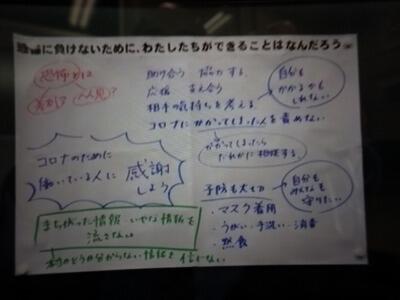 に負けないために、わたしたちができることはなんだろう
恐怖心に
助け合う 協力する
応援 支え合う
相手の気持ちを考える
コロナにかかってしまった人を責めない
自分も
かかるかも
しれない
かかってしまったら
だれかに相談する。
コロナのために
働いている人に 感謝
しよう
予防も大切
・マスク着用
・うがい・手洗い・消毒
・黙食
自分も
みんなも
守りたい
まちがった情報 いやな情報を
流さない
本当かどうか分からない情報を信じない